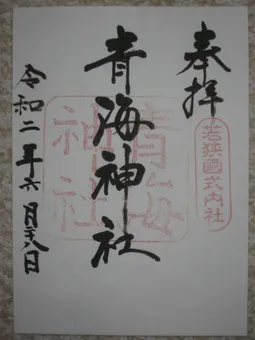 奉拝
若狭國式内社
青海神社
青海神社
令和二年六月二八日